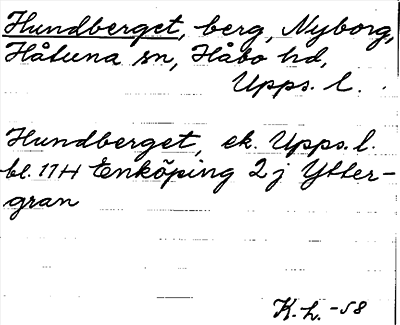 Hundberget, berg, Nyborg,
Håtuna sn, Håbo hd,
Upps. l.
Hundberget, ek. Upps. l.
bl. 11H Enköping 2j Ytter-
gran
K.h. -58